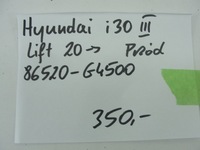 Hyundai i30 III
Lift 20-> Przód
86520-G4500
350,-